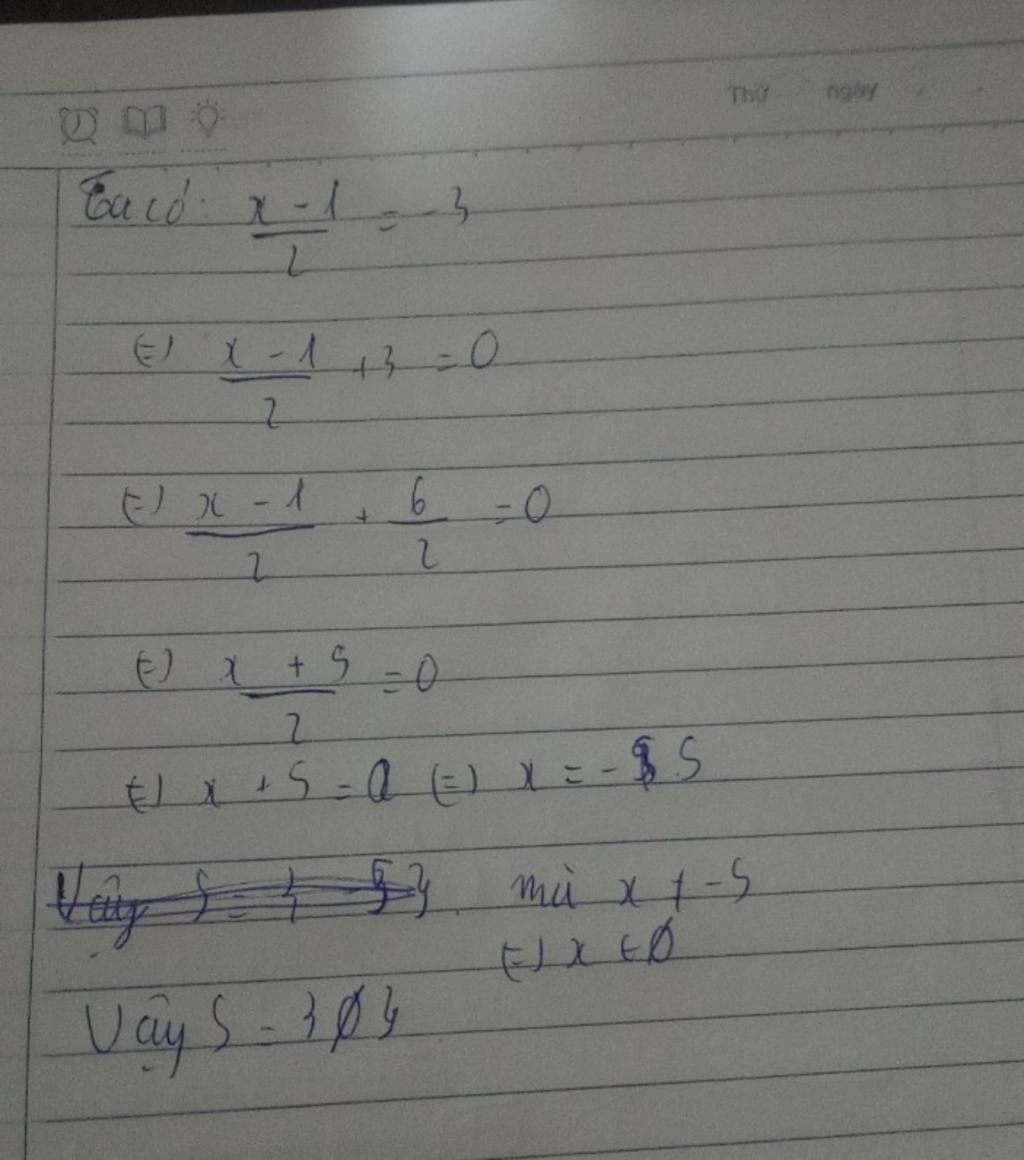 Thứ ngày
Ta có: \frac{x - 1}{2} = -3
(=) \frac{x - 1}{2} + 3 = 0
(=) \frac{x - 1}{2} + \frac{6}{2} = 0
(=) \frac{x + 5}{2} = 0
(=) x + 5 = 0 (=) x = -5
Vậy S = { -5 } mà x ≠ -5
(=) x ∈ ∅
Vậy S = {∅}